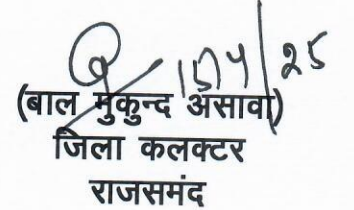 15/4/25
(बाल मुकुन्द असावा)
जिला कलक्टर
राजसमंद